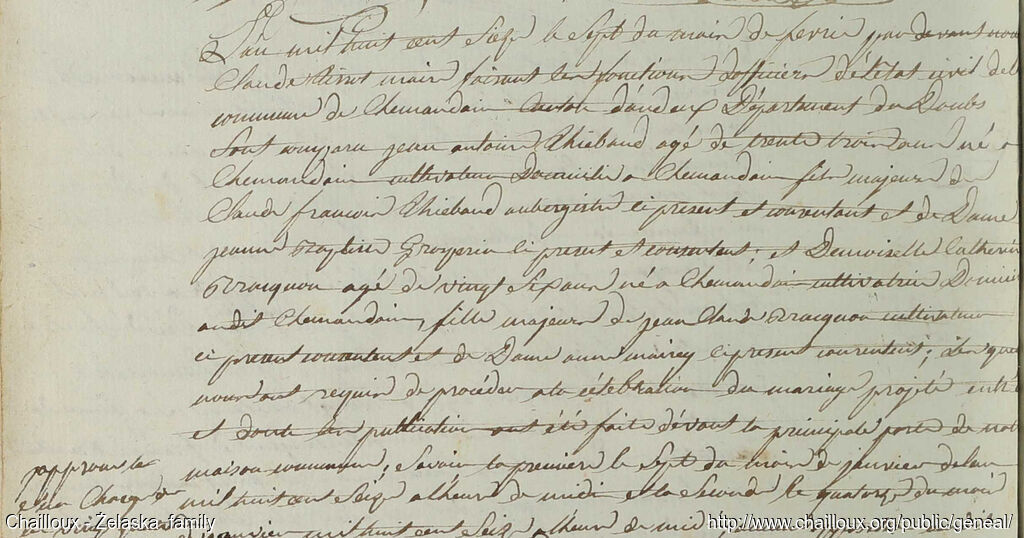 L'an mil huit cent seize le sept du mois de fevrie par devant nous
Claude maire faisant les fonctions d'officiers d'état civil de la
commune de Chemaudain canton d'audeux Département du Doubs
sont comparu jean antoine Thiebaud agé de trente trois ans né a
Chemaudain cultivateur Domicilié a Chemaudain fils majeur de
Claude francois Thiebaud aubergiste ci present et consentant et de Dame
jeanne Baptiste ci present et consentent; et Demoiselle Catherine
agé de vingt six ans né a Chemaudain cultivatrice Domicilié
audit Chemaudain, fille majeure de jean Claude cultivateur
ci present consentent et de Dame anne mairey ci present consentent; lesquels
nous ont requis de procéder a la célébration du mariage projeté entre
et dont les publications ont été faite dévant la principale porte de notre
maison commune; savoir la premiere le sept du mois de janvier de l'an
mil huit cent seize a l'heure de midi et la seconde le quatorze du mois
janvier mil huit cent seize a l'heure de midi
japprouve la
Chailloux - Żelaska family
http://www.chailloux.org/public/geneal/